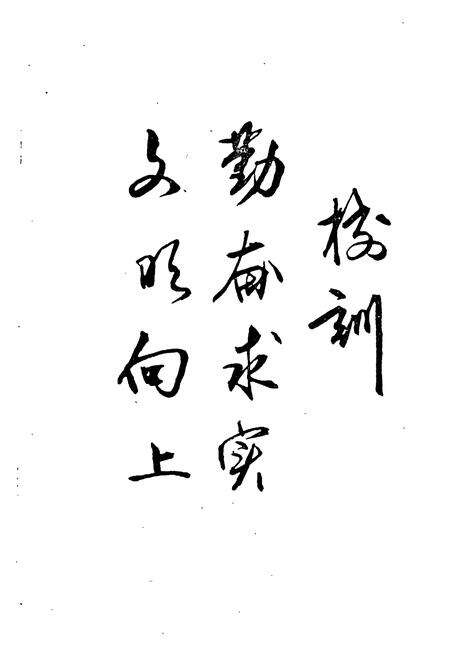 校训
勤奋求实
文明向上